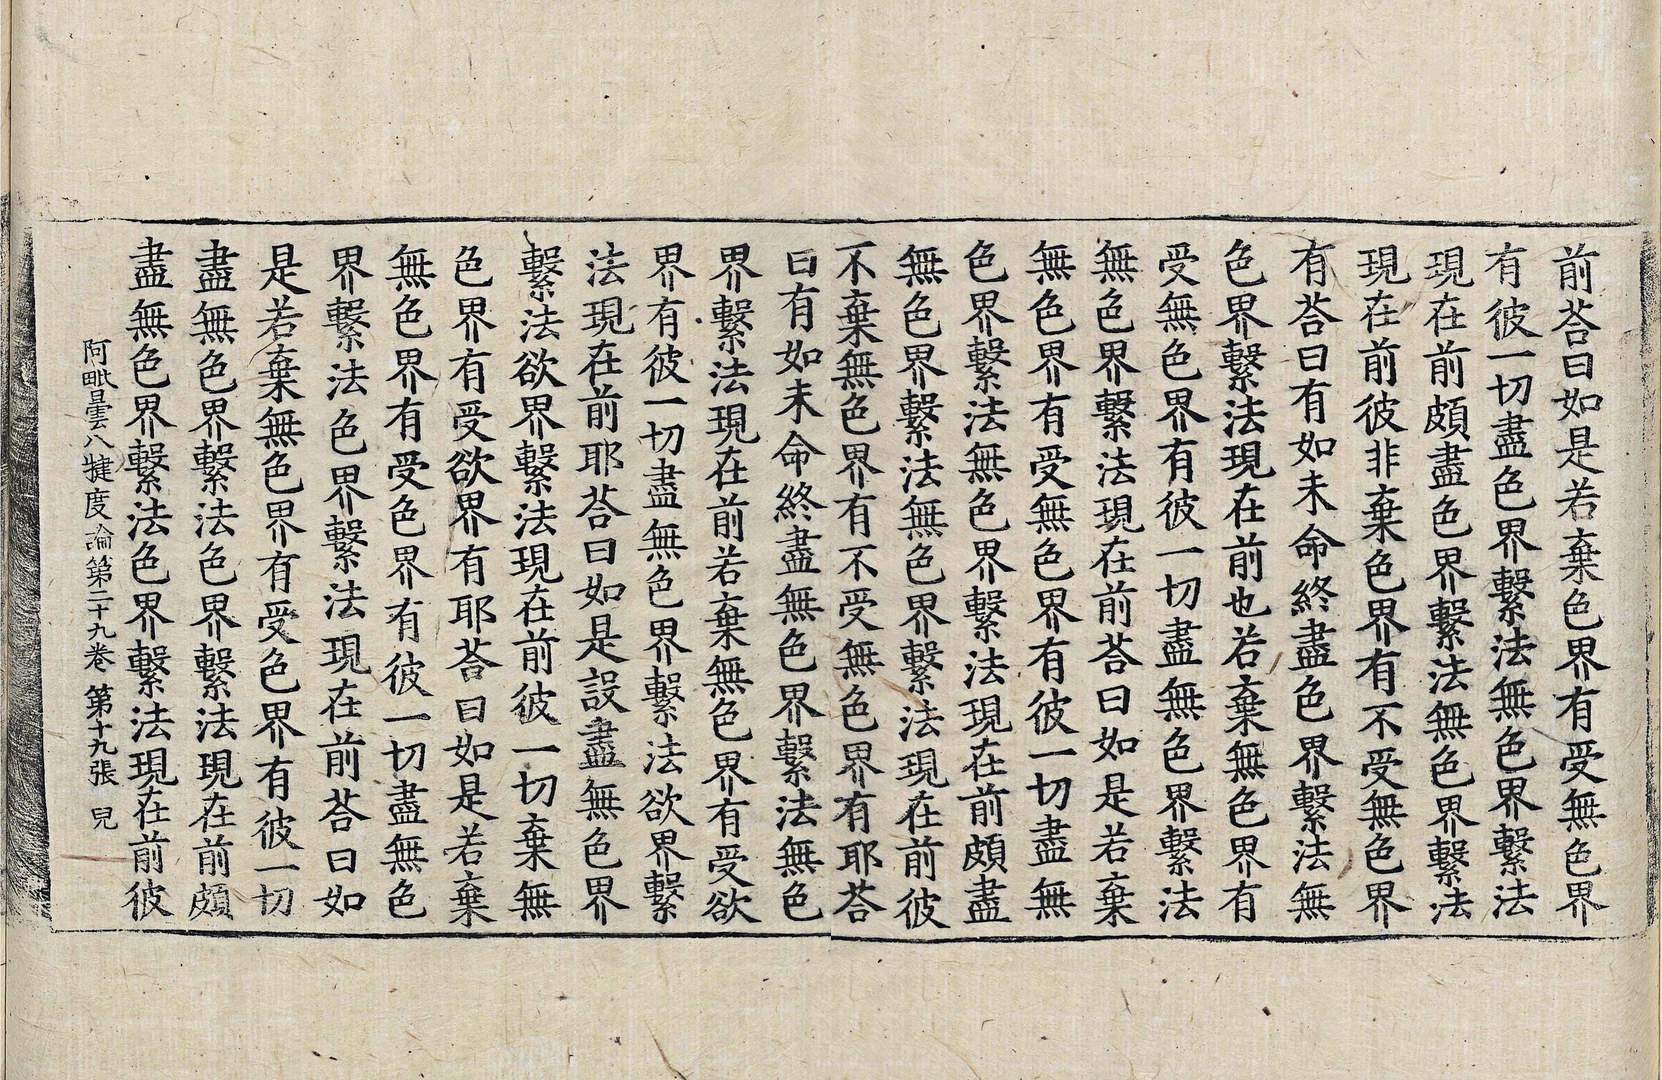 前荅曰如是若棄色界有受無色界
有彼一切盡色界繫法無色界繫法
現在前頗盡色界繫法無色界繫法
現在前彼非棄色界有不受無色界
有荅曰有如未命終盡色界繫法無
色界繫法現在前也若棄無色界有
受無色界有彼一切盡無色界繫法
無色界繫法現在前荅曰如是若棄
無色界有受無色界有彼一切盡無
色界繫法無色界繫法現在前頗盡
無色界繫法無色界繫法現在前彼
不棄無色界有不受無色界有耶荅
曰有如未命終盡無色界繫法無色
界繫法現在前若棄無色界有受欲
界有彼一切盡無色界繫法欲界繫
法現在前耶荅曰如是設盡無色界
繫法欲界繫法現在前彼一切棄無
色界有受欲界有耶荅曰如是若棄
無色界有受色界有彼一切盡無色
界繫法色界繫法現在前荅曰如
是若棄無色界有受色界有彼一切
盡無色界繫法色界繫法現在前頗
盡無色界繫法色界繫法現在前彼
阿毗曇八犍度論第二十九卷 第十九張 兒